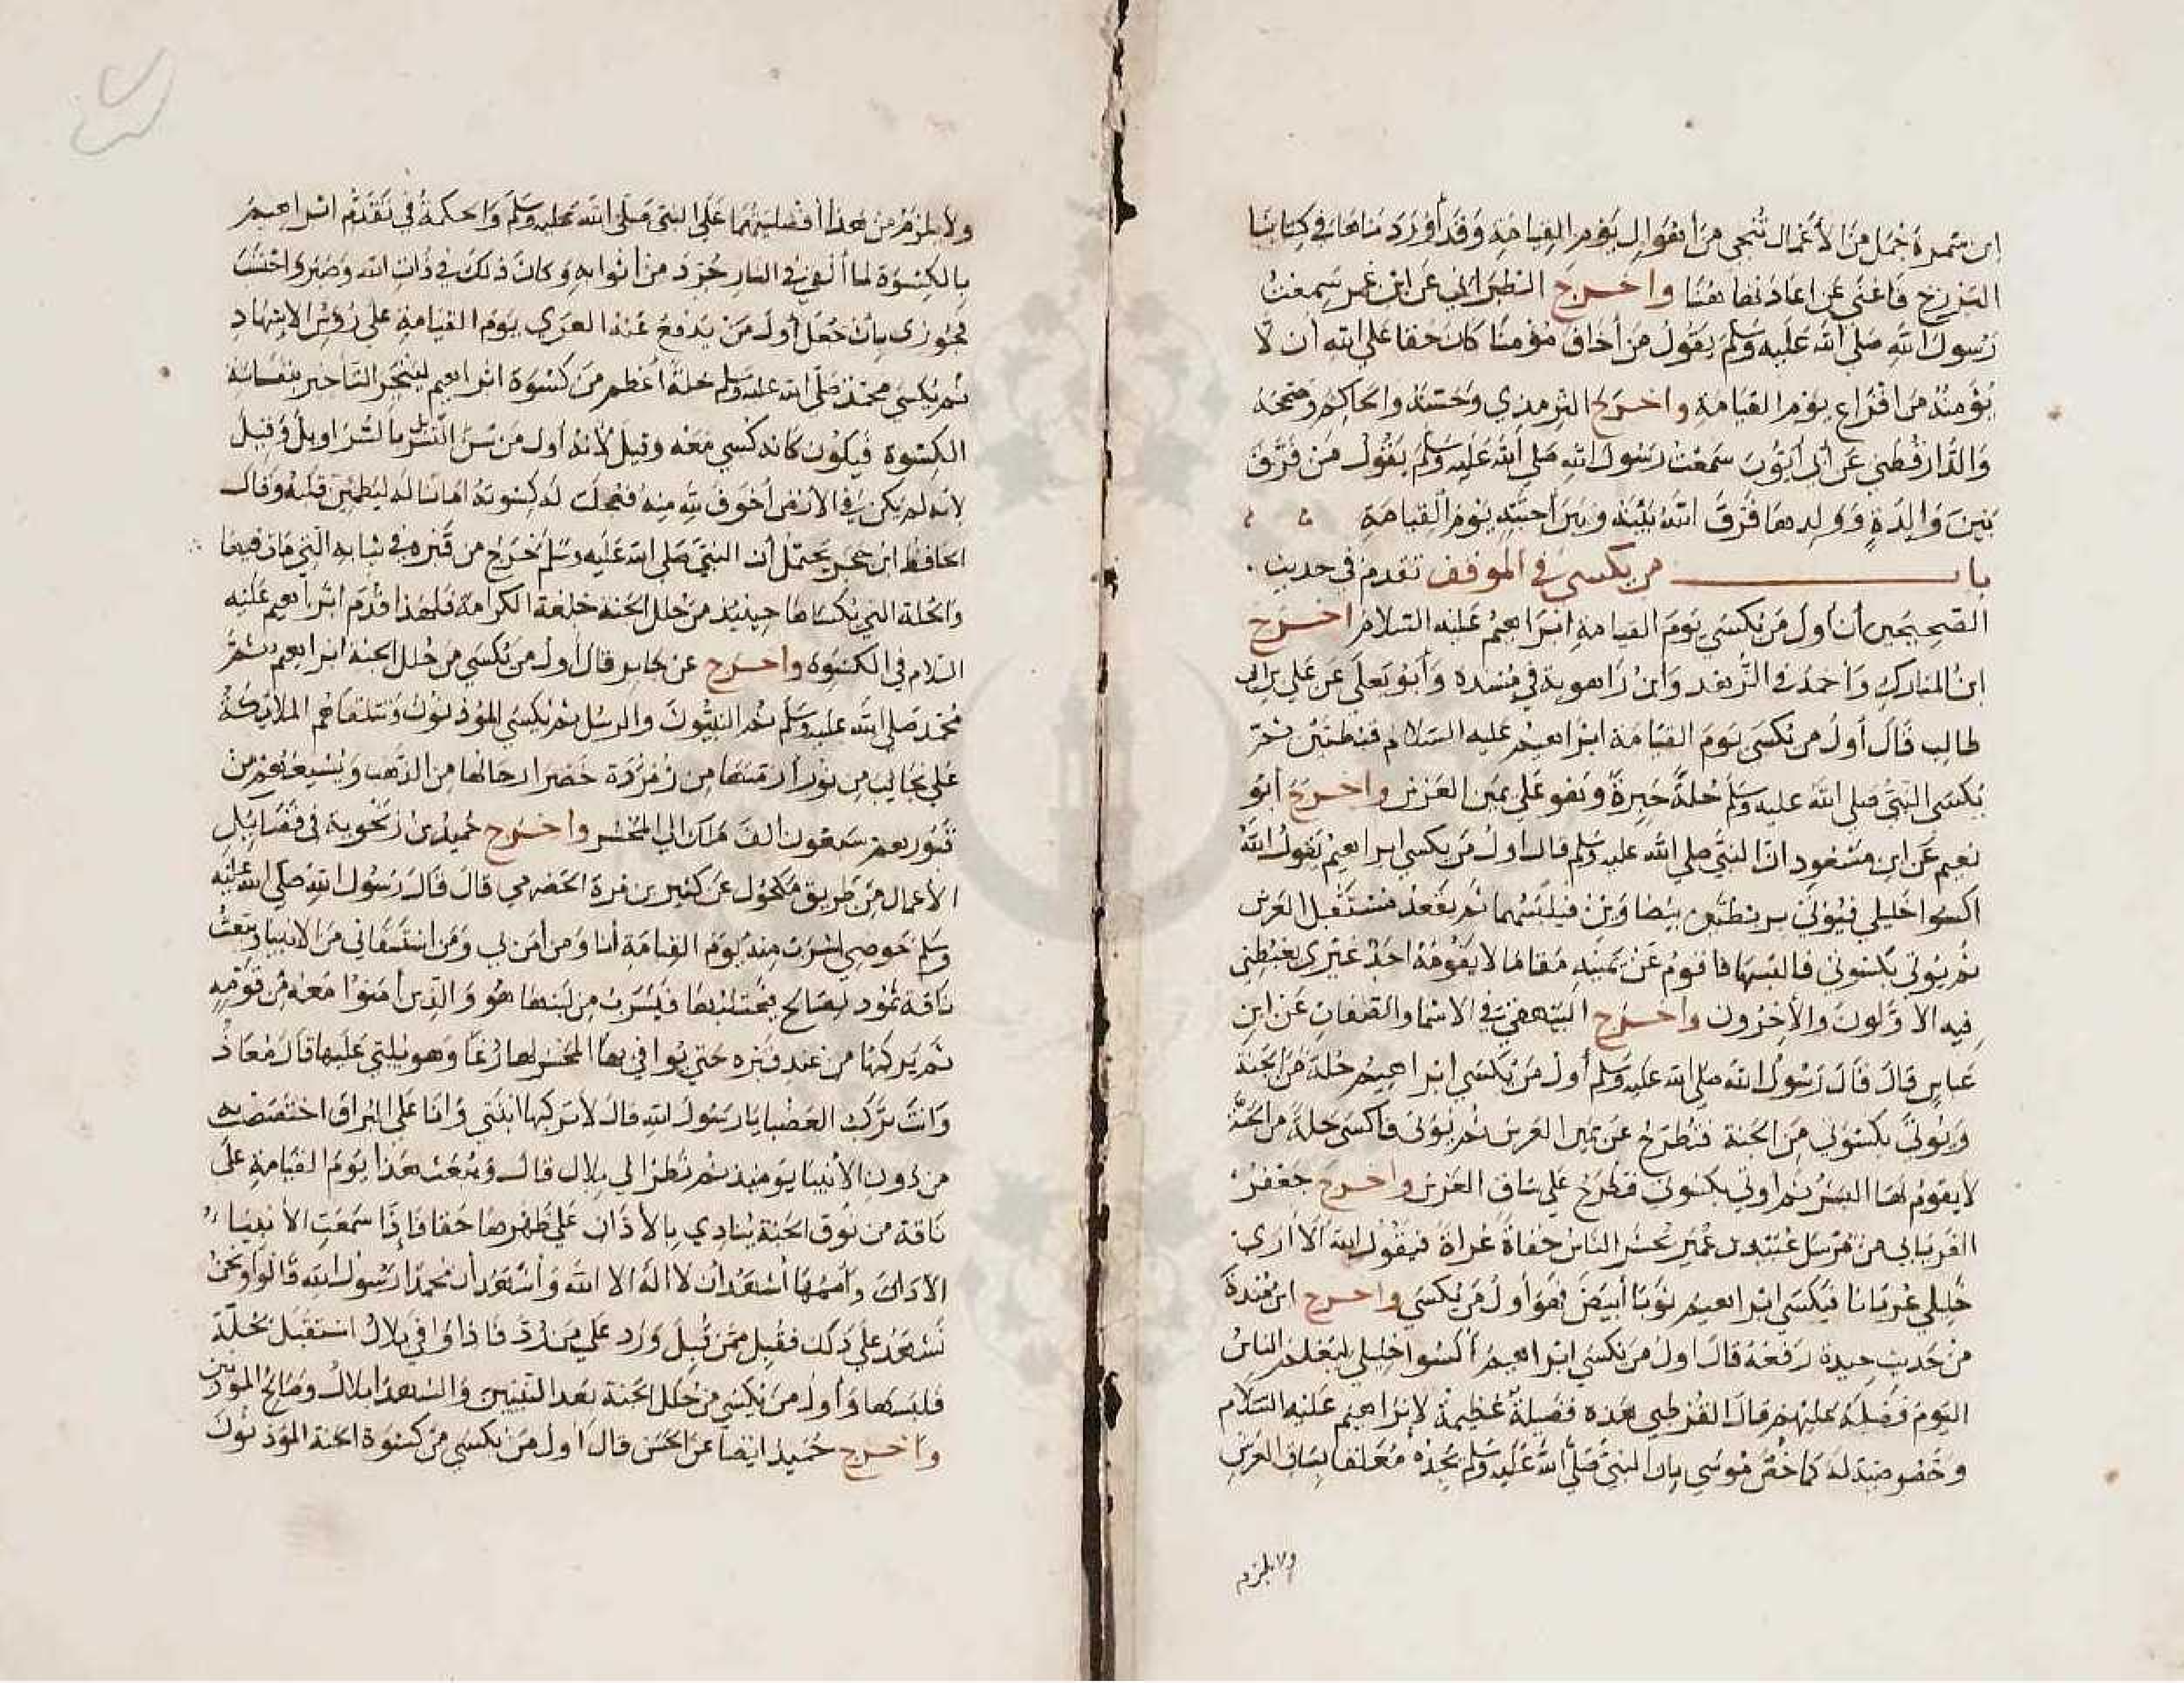 ابن سمرة جمل من الأعمال تنجي من أهوال يوم القيامة وقد أوردناها في كتابنا
البرزخ فاغنى عن اعادتها هنا واخرج الطبراني عن ابن عمر سمعت
رسول الله صلى الله عليه وسلم يقول من أخاف مؤمنا كان حقا على الله أن لا
يؤمنه من افزاع يوم القيامة واخرج الترمذي وحسنه والحاكم وصححه
والدارقطني عن أبي أيوب سمعت رسول الله صلى الله عليه وسلم يقول من فرق
بين والدة وولدها فرق الله بينه وبين أحبته يوم القيامة
باب من يكسى في الموقف تقدم في حديث
الصحيحين أن أول من يكسى يوم القيامة ابراهيم عليه السلام اخرج
ابن المبارك وأحمد في الزهد وابن راهوية في مسنده وأبو يعلى عن علي بن ابي
طالب قال أول من يكسى يوم القيامة ابراهيم عليه السلام قبطيتين ثم
يكسى النبي صلى الله عليه وسلم حلة حبرة وهو على يمين العرش واخرج أبو
نعيم عن ابن مسعود ان النبي صلى الله عليه وسلم قال اول من يكسى ابراهيم يقول الله
اكسوا خليلي فيؤتى بريطتين بيضاوين فيلبسهما ثم يقعد مستقبل العرش
ثم يؤتى بكسوتي فالبسها فاقوم عن يمينه مقاما لا يقومه احد غيري يغبطني
فيه الاولون والاخرون واخرج البيهقي في الاسما والصفات عن ابن
عباس قال قال رسول الله صلى الله عليه وسلم أول من يكسى ابراهيم حلة من الجنة
ويؤتى بكسوتي من الجنة فتطرح عن يمين العرش ثم يؤتى فأكسى حلة من الجنة
لا يقوم لها البشر ثم اوتى بكسوتي فتطرح على ساق العرش واخرج جعفر
الفريابي من مرسل عبيد بن عمير تحشر الناس حفاة عراة فيقول الله ألا أرى
خليلي عريانا فيكسى ابراهيم ثوبا أبيض فهو أول من يكسى واخرج ابن مندة
من حديث حيدة رفعه قال اول من يكسى ابراهيم أكسوا خليلي ليعلم الناس
اليوم فضله عليهم قال القرطبي هذه فضيلة عظيمة لإبراهيم عليه السلام
وخصوصية له كما خص موسى بان النبي صلى الله عليه وسلم يجده معلقا بساق العرش
ولا يلزم
ولا يلزم من هذا أفضليتهما على النبي صلى الله عليه وسلم والحكمة في تقدم ابراهيم
بالكسوة لما ألقي في النار جرد من أثوابه وكان ذلك في ذات الله وصبر واحتسب
فجوزى بأن جعل أول من يدفع عنه العري يوم القيامة على رؤس الاشهاد
ثم يكسى محمد صلى الله عليه وسلم حلة أعظم من كسوة ابراهيم لينجبر التاخير بنفاسة
الكسوة فيكون كانه كسي معه وقيل لأنه أول من سن التستر بالسراويل وقيل
لأنه لم يكن في الارض أخوف لله منه فعجلت له كسوته امانا له ليطمئن قلبه وقال
الحافظ ابن حجر يحتمل أن النبي صلى الله عليه وسلم خرج من قبره في ثيابه التي مات فيها
والحلة التي يكساها حينيذ من حلل الجنة خلعة الكرامة فلهذا قدم ابراهيم عليه
السلام في الكسوة واخرج عن جابر قال أول من يكسى من حلل الجنة ابراهيم ثم
محمد صلى الله عليه وسلم ثم النبيون والرسل ثم يكسى المؤذنون وتتلقاهم الملايكة
على نجايب من نور أزمتها من زمردة خضر ارحالها من الذهب ويشيعهم من
قبورهم سبعون الف ملك الى المحشر واخرج حميد بن زنجوية في فضايل
الأعمال من طريق مكحول عن كثير بن مرة الحضرمي قال قال رسول الله صلى الله عليه
وسلم حوضي اشرب منه يوم القيامة أنا ومن أمن بي ومن استسقاني من الانبيا ويبعث
ناقة ثمود لصالح فيحتلبها فيشرب من لبنها هو والذين أمنوا معه من قومه
ثم يركبها من عند قبره حتى يوافي بها المحشر لها رغا وهو يلبي عليها قال معاذ
وانت تركب العضبا يا رسول الله قال لا تركبها ابنتي وانا على البراق اختصصت به
من دون الأنبيا يومئذ ثم نظر الى بلال قال ويبعث هذا يوم القيامة على
ناقة من نوق الجنة ينادي بالأذان على ظهرها حقا فاذا سمعت الأنبيا
الاذان وأممها أشهد أن لا اله الا الله وأشهد أن محمدا رسول الله قالوا ونحن
نشهد على ذلك فقبل ممن قبل ورد على من رد فاذا وافى بلال استقبل بحلة
فلبسها وأول من يكسى من حلل الجنة بعد النبيين والشهدا بلال وصالح المؤذنين
واخرج حميد ايضا عن الحسن قال أول من يكسى من كسوة الجنة المؤذنون